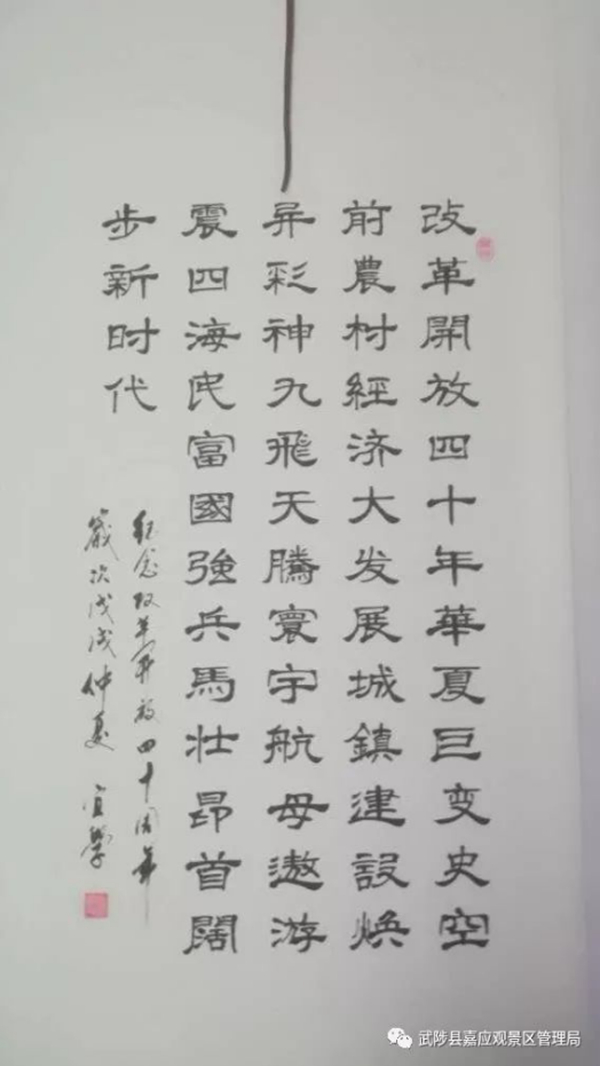 改革開放四十年華夏巨变史空
前農村經济大发展城鎮建設焕
异彩神九飛天騰寰宇航母遨游
震四海民富國強兵馬壮昂首闊
步新时代
纪念改革开放四十周年
歲次戊戌仲夏 宜學
武陟县嘉应观景区管理局